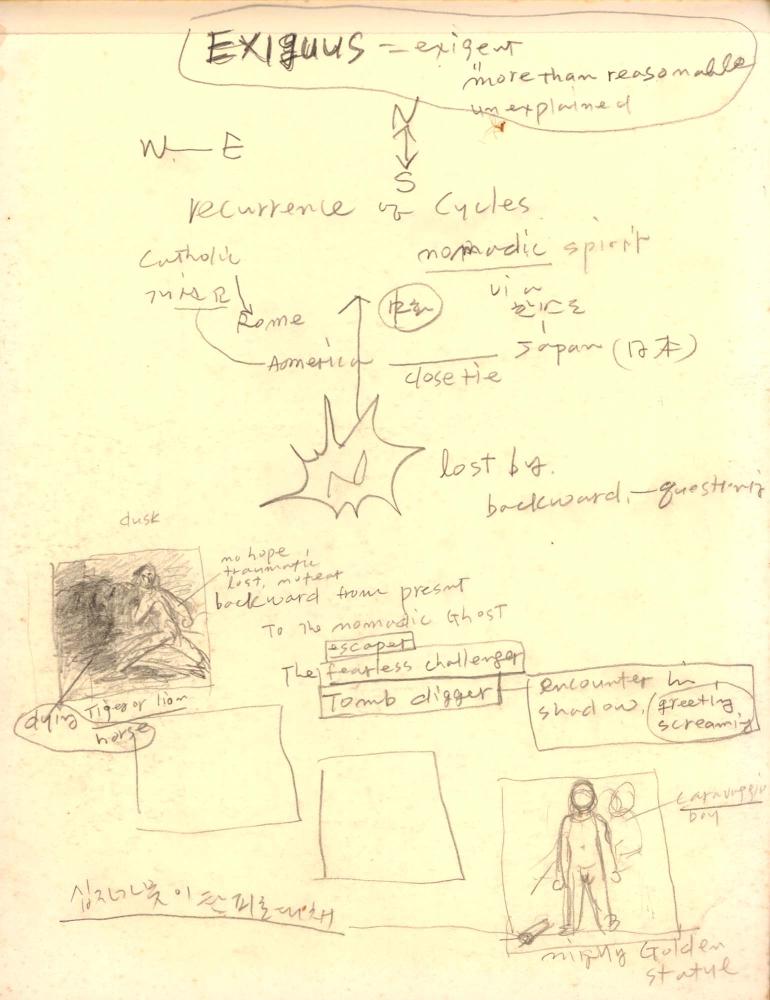 EXIguus = exigent
more than reasonable
unexplained
N
W — E
S
recurrence of Cycles
Catholic
Rome
nomadic spirit
via
America
close tie
Japan (日本)
N
lost by.
backward, — questioning
dusk
no hope
traumatic
lost,
backward from present
To the nomadic Ghost
escaper
The fearless challenger
Tomb digger
encounter in
shadow,
greeting
screaming
dying Tiger or lion
horse
boy
mighty Golden
statue